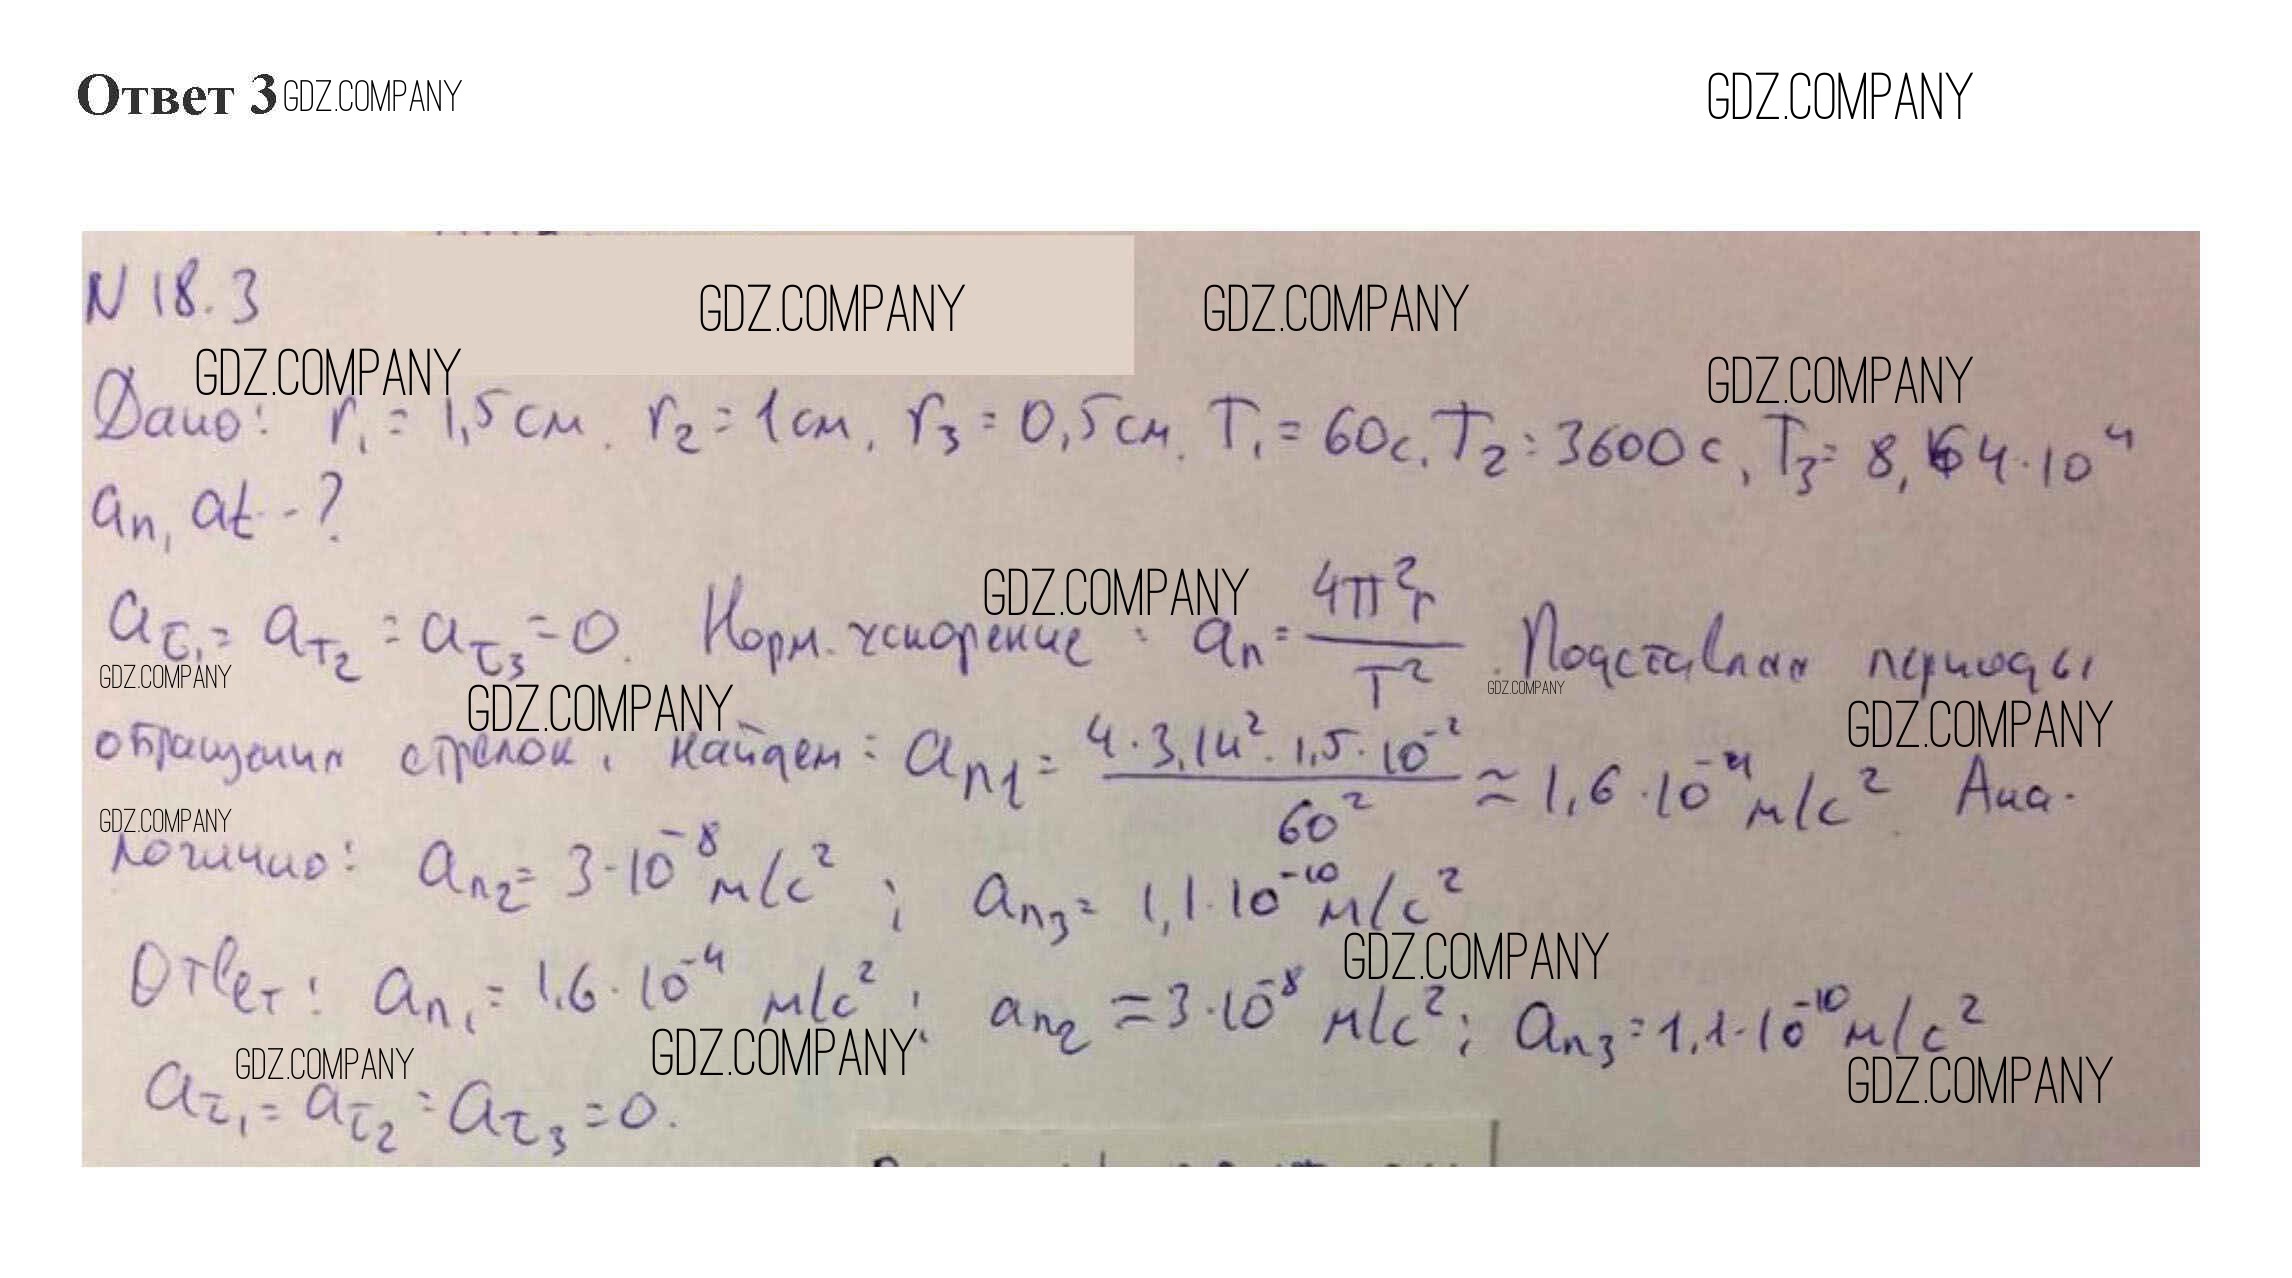 Ответ 3 GDZ.COMPANY GDZ.COMPANY
N 18.3 GDZ.COMPANY GDZ.COMPANY
GDZ.COMPANY GDZ.COMPANY
Дано: r₁ = 1,5 см. r₂ = 1 см, r₃ = 0,5 см. T₁ = 60 с. T₂ = 3600 с, T₃ = 8,64·10⁴
aₙ, at - ?
GDZ.COMPANY
aτ₁ = aτ₂ = aτ₃ = 0. Норм. ускорение: aₙ = 4π²r / T². Подставляя периоды
GDZ.COMPANY GDZ.COMPANY GDZ.COMPANY GDZ.COMPANY
обращения стрелок, найдем: aₙ₁ = 4·3,14²·1,5·10⁻² / 60² ≈ 1,6·10⁻⁴ м/с². Ана-
GDZ.COMPANY
логично: aₙ₂ = 3·10⁻⁸ м/с²; aₙ₃ = 1,1·10⁻¹⁰ м/с²
GDZ.COMPANY
Ответ: aₙ₁ = 1,6·10⁻⁴ м/с²; aₙ₂ = 3·10⁻⁸ м/с²; aₙ₃ = 1,1·10⁻¹⁰ м/с²
GDZ.COMPANY GDZ.COMPANY GDZ.COMPANY
aτ₁ = aτ₂ = aτ₃ = 0.